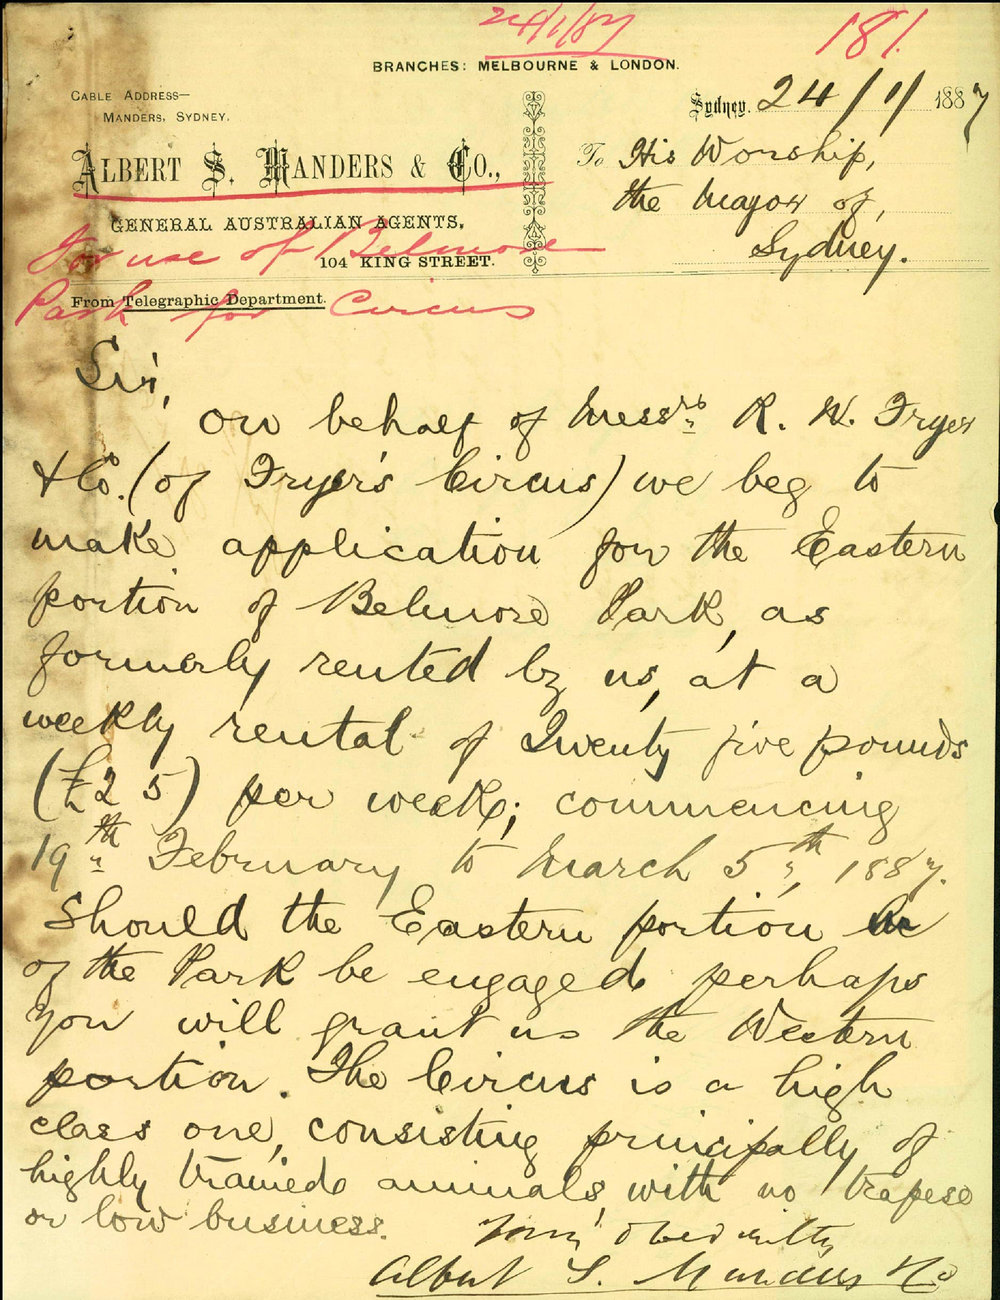 24/1/87
181.
BRANCHES: MELBOURNE & LONDON.
CABLE ADDRESS—
MANDERS, SYDNEY.
Sydney. 24/1/ 1887
ALBERT S. MANDERS & CO.,
To His Worship,
the Mayor of,
Sydney.
GENERAL AUSTRALIAN AGENTS,
104 KING STREET.
For use of Belmore
Park for Circus
From Telegraphic Department.
Sir,
On behalf of Messrs R. W. Fryer
& Co. (of Fryer's Circus) we beg to
make application for the Eastern
portion of Belmore Park, as
formerly rented by us, at a
weekly rental of Twenty five pounds
(£25) per week; commencing
19th February to March 5th, 1887.
Should the Eastern portion
of the Park be engaged perhaps
you will grant us the Western
portion. The Circus is a high
class one, consisting principally of
highly trained animals, with no trapese
or low business.
Yours obediently
Albert S. Manders & Co